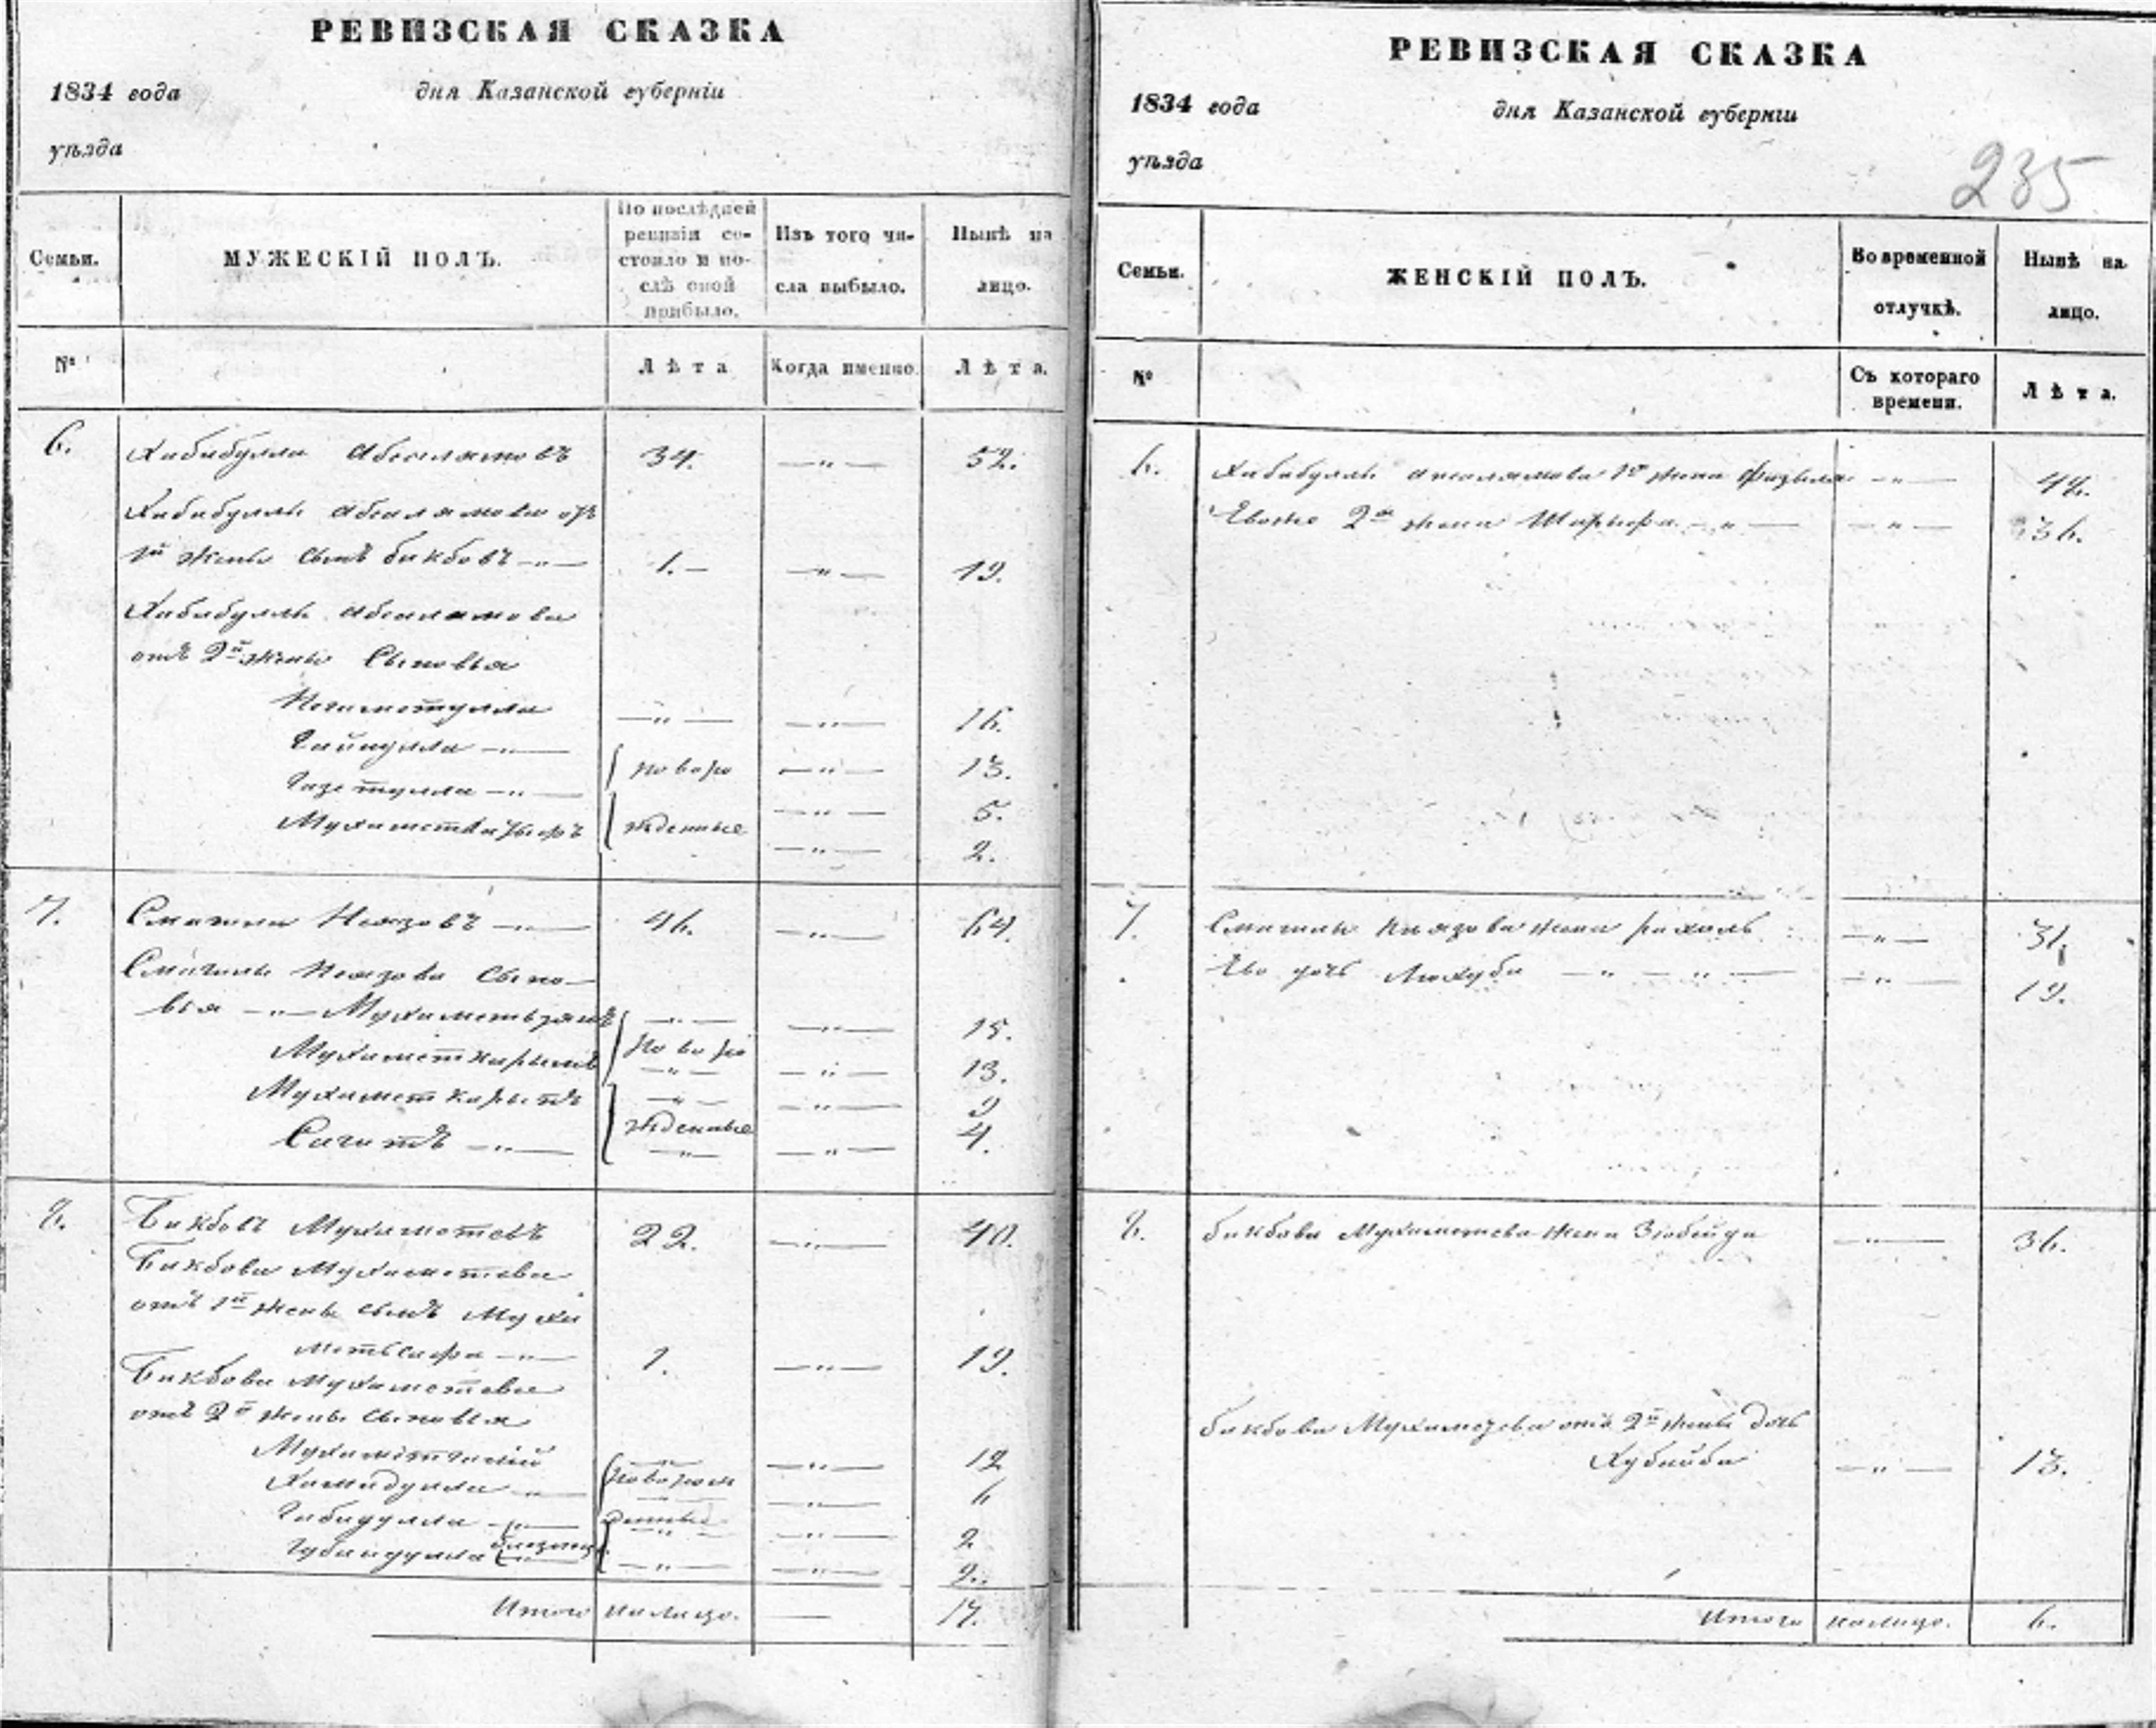 РЕВИЗСКАЯ СКАЗКА
1834 года дня Казанской губерніи
уѣзда
Семьи. МУЖЕСКІЙ ПОЛЪ. По послѣдней ревизіи состояло и послѣ оной прибыло. Изъ того числа выбыло. Нынѣ на лицо.
№ Лѣта Когда именно. Лѣта.
6. Хабибулла Абселямовъ 34. —„— 52.
Хабибуллы Абселямова отъ
1й жены сынъ Бикбовъ —„— 1.— —„— 19.
Хабибуллы Абселямова
отъ 2й жены Сыновья
Негаметулла —„— —„— 16.
—„— новоро —„— 13.
—„— —„— 5.
жденные —„— 2.
7. Смагилъ Неязовъ —„— 46. —„— 64.
Смагила Неязова Сыно-
вья —„— Мухаметьзянъ —„— —„— 15.
Мухамет новоро —„— 13.
Мухамет —„— —„— 9
Сагитъ —„— жденные —„— 4.
8. Бикбовъ Мухаметевъ 22. —„— 40.
Бикбова Мухаметева
отъ 1й жены сынъ Муха
метьсафа —„— 1. —„— 19.
Бикбова Мухаметева
отъ 2й жены сыновья
Мухамет —„— 12
Хамидулла —„— новорож —„— 6
Габидулла —„— денные —„— 2
Губайдулла близнецы —„— —„— 2.
Итого налицо. — 17.
РЕВИЗСКАЯ СКАЗКА
1834 года дня Казанской губерніи
уѣзда
235
Семьи. ЖЕНСКІЙ ПОЛЪ. Во временной отлучкѣ. Нынѣ на лицо.
№ Съ котораго времени. Лѣта.
6. Хабибуллы Абселямова 1я жена Фазыля —„—
Ево же 2я жена —„— —„— 36.
7. Смагила Неязова жена —„— 31.
Ево дочь —„— —„— —„— 19.
8. Бикбова Мухаметева жена Зюбейда —„— 36.
Бикбова Мухаметева отъ 2й жены дочь
Хубайба —„— 13.
Итого налицо. 6.